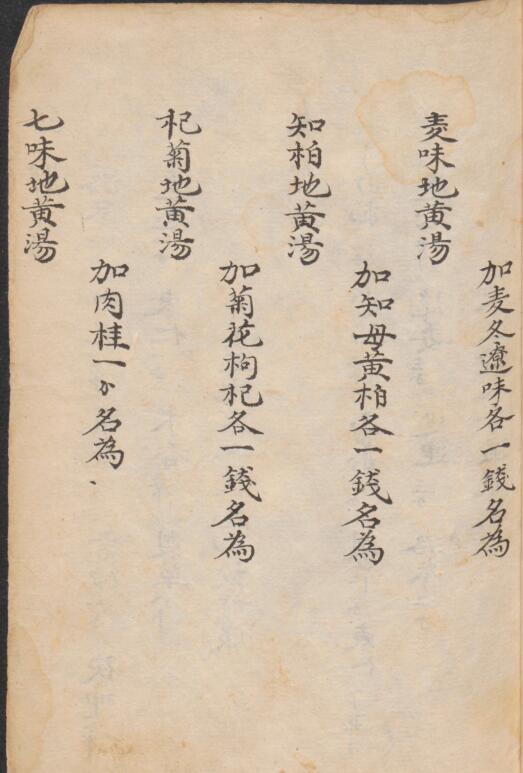 加麦冬遼味各一錢名為
麦味地黄湯
加知母黄柏各一錢名為
知柏地黄湯
加菊花枸杞各一錢名為
杞菊地黄湯
加肉桂一分名為、
七味地黄湯